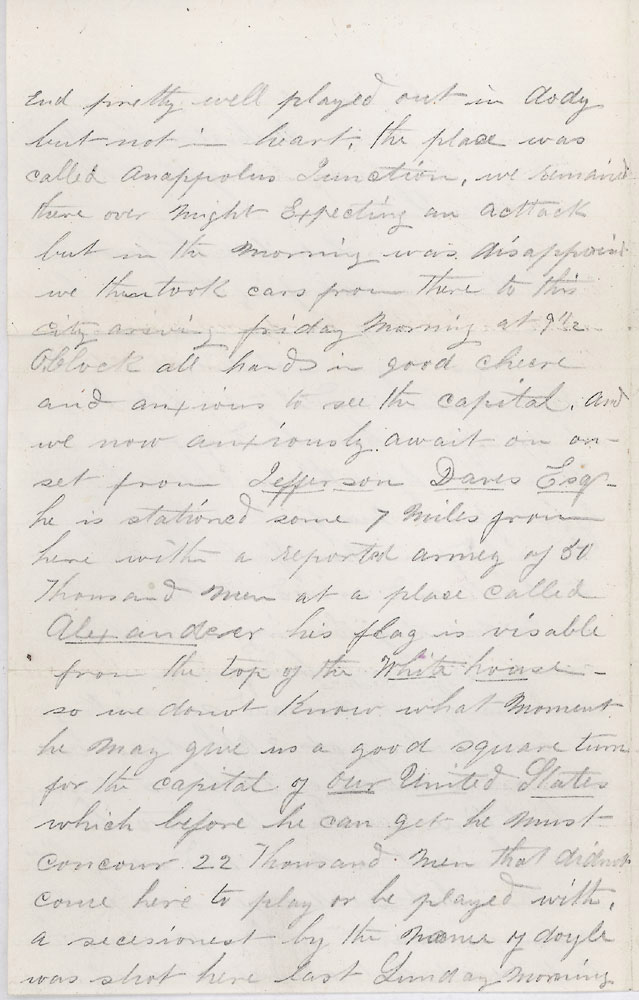 End pretty well played out in body
but not in heart, the place was
called Anappolus Junction, we remained
there over Might Expecting an acttack
but in the Morning was disappoint
we then took cars from there to this
city ariving friday Morning at 9 1/2
OClock all hands in good cheere
and anxious to see the capital. and
we now anxiously await on on-
set from Jefferson Daves Esq-
he is stationed some 7 Miles from
here with a reported armey of 50
Thousand Men at a place called
Alexanderer his flag is visable
from the top of the White house -
so we donnt Know what Moment
he May give us a good square turn
for the capital of our United States
which before he can get he Must
Concour 22 Thousand. Men that didnt
come here to play or be played with,
a secesionest by the name of doyle
was shot here last Sunday Morning